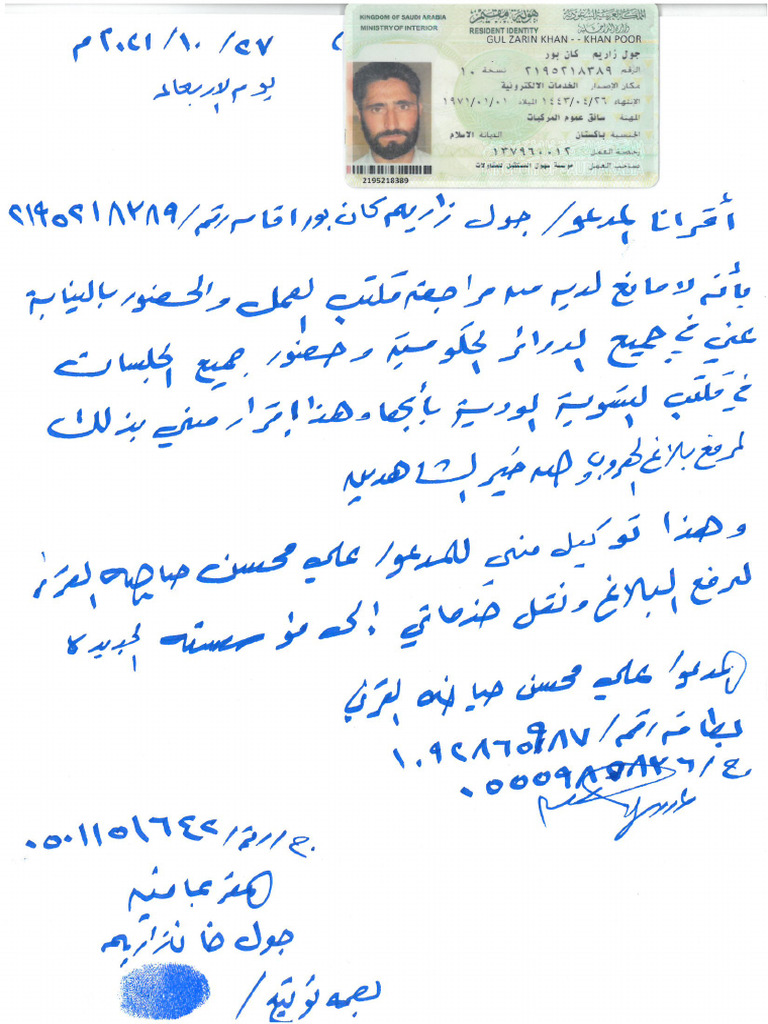 KINGDOM OF SAUDI ARABIA
MINISTRY OF INTERIOR
هوية مقيم
RESIDENT IDENTITY
المملكة العربية السعودية
وزارة الداخلية
GUL ZARIN KHAN - - KHAN POOR
جول زاريم كان بور
الرقم ٢١٩٥٢١٨٣٨٩ نسخة ١٠
مكان الإصدار الخدمات الالكترونية
الانتهاء ١٤٤٣/٠٤/٢٦ الميلاد ١٩٧١/٠١/٠١
المهنة سائق عموم المركبات
الجنسية باكستان الديانة الاسلام
رخصة العمل ١٣٧٩٦٠٠١٢
صاحب العمل مؤسسة سهول المستقبل للمقاولات
2195218389
٢٧/ ١٠/ ٢٠٢١م
يوم الاربعاء
أقر انا المدعو/ جول زاريم كان بور اقامه رقم/ ٢١٩٥٢١٨٣٨٩
بأنه لا مانع لديه من مراجعة مكتب العمل والحضور بالنيابة
عني في جميع الدوائر الحكومية وحضور جميع الجلسات
في مكتب التسوية الودية بأبها وهذا إقرار مني بذلك
لرفع بلاغ الهروب والله خير الشاهدين
وهذا توكيل مني للمدعو/ علي محسن القرني
لرفع البلاغ ونقل خدماتي إلى مؤسسته الجديدة
المدعو/ علي محسن القرني
بطاقه رقم/ ١٠٩٢٨٦٥٩٨٧
ج/
ج/رقم/ ٠٥٠١١٥١٦٤٢
مقر بما فيه
جول خان زاريم
بصمه توقيع/